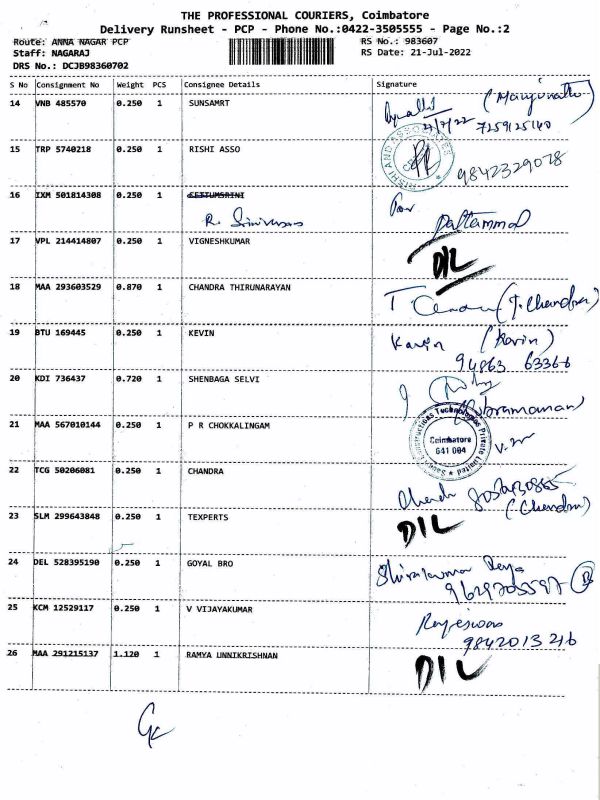 THE PROFESSIONAL COURIERS, Coimbatore
Delivery Runsheet - PCP - Phone No.:0422-3505555 - Page No.:2
Route: ANNA NAGAR PCP RS No.: 983607
Staff: NAGARAJ RS Date: 21-Jul-2022
DRS No.: DCJB98360702
S No Consignment No Weight PCS Consignee Details Signature
14 VNB 485570 0.250 1 SUNSAMRT
7259125140
15 TRP 5740218 0.250 1 RISHI ASSO
RISHI AND ASSOCIATES
9842329078
16 IXM 501814308 0.250 1
R. Srinivasan
17 VPL 214414807 0.250 1 VIGNESHKUMAR
D/L
18 MAA 293603529 0.870 1 CHANDRA THIRUNARAYAN
19 BTU 169445 0.250 1 KEVIN
(Kevin)
94863 63366
20 KDI 736437 0.720 1 SHENBAGA SELVI
21 MAA 567010144 0.250 1 P R CHOKKALINGAM
Coimbatore
641 004
22 TCG 50206081 0.250 1 CHANDRA
23 SLM 299643848 0.250 1 TEXPERTS
D/L
24 DEL 528395190 0.250 1 GOYAL BRO
25 KCM 12529117 0.250 1 V VIJAYAKUMAR
9842013216
26 MAA 291215137 1.120 1 RAMYA UNNIKRISHNAN
D/L